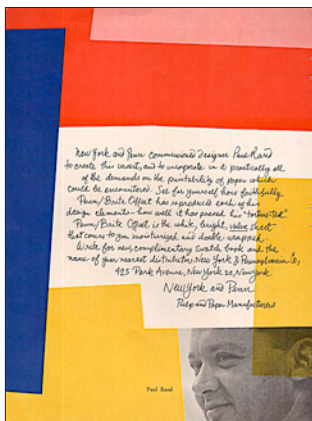 New York and Penn commissioned designer Paul Rand
to create this insert, and to incorporate in it practically all
of the demands on the printability of paper which
could be encountered. See for yourself how faithfully
Penn/Brite Offset has reproduced each of his
design elements—how well it has passed his "torture-test."
Penn/Brite Offset is the white, bright, value sheet
that comes to you moisturized and double wrapped.
Write for new, complimentary swatch book and the
name of your nearest distributor. New York & Pennsylvania Co,
425 Park Avenue, New York 22, New York
New York and Penn
Pulp and Paper Manufacturers
Paul Rand